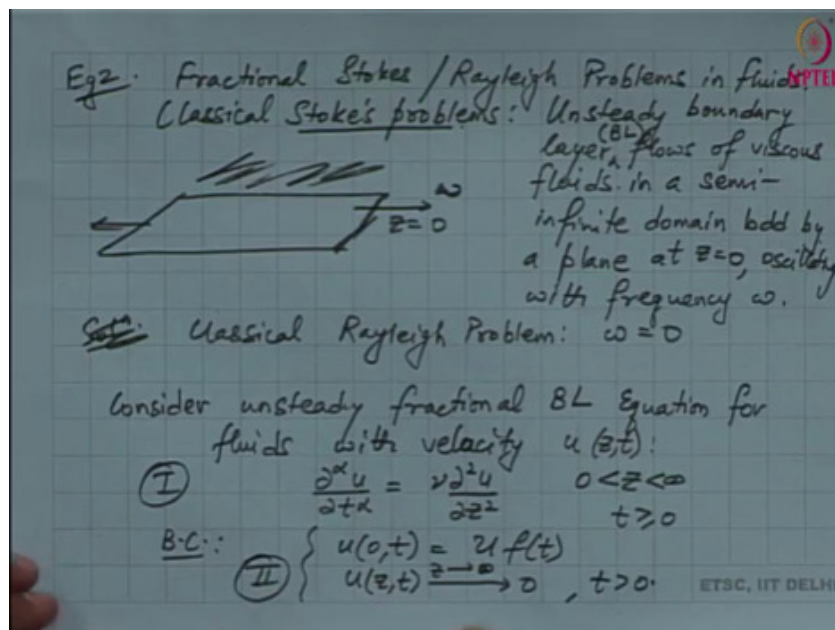 Eg2. Fractional Stokes / Rayleigh Problems in fluids
NPTEL
Classical Stoke's problems: Unsteady boundary
layer (BL) flows of viscous
fluids in a semi-
infinite domain bdd by
a plane at z=0, oscillatg
with frequency ω.
ω
z=0
Classical Rayleigh Problem: ω=0
Consider unsteady fractional BL Equation for
fluids with velocity u(z,t):
I ∂^α u/∂t^α = ν ∂²u/∂z² 0<z<∞
t≥0
B.C.: u(0,t) = U f(t)
II u(z,t) z→∞ → 0, t>0.
ETSC, IIT DELHI